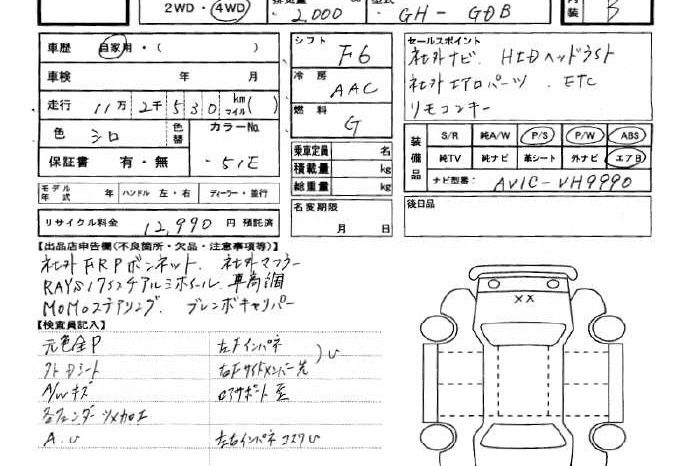 2WD・4WD 排気量 2,000 cc 型式 GH-GDB 内装 B
車歴 自家用・( )
車検 年 月
走行 11万 2千 530 km マイル( )
色 シロ 色替 カラーNo. 51E
保証書 有・無
モデル年式 年 ハンドル 左・右 ディーラー・並行
リサイクル料金 12,990 円 預託済
シフト F6
冷房 AAC
燃料 G
乗車定員 名
積載量 kg
総重量 kg
名変期限 月 日
セールスポイント
社外ナビ. HIDヘッドライト
社外エアロパーツ. ETC
リモコンキー
装備品 S/R 純A/W P/S P/W ABS
純TV 純ナビ 革シート 外ナビ エアB
ナビ型番: AVIC-VH9990
後日品
【出品店申告欄(不良箇所・欠品・注意事項等)】
社外FRPボンネット. 社外マフラー
RAYS17インチアルミホイール. 車高調
MOMOステアリング. ブレンボキャリパー
【検査員記入】
元色全P 左Fインパネ
フトロシート 右Fサイドメンバー先
A/Wキズ
各フェンダーツメカロエ
A.U
XX